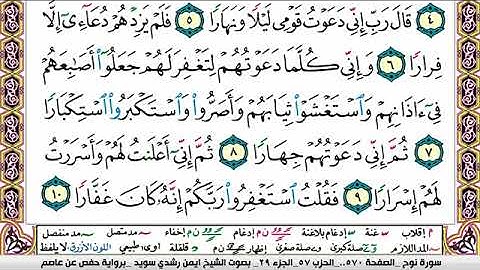 ٤ قَالَ رَبِّ إِنِّى دَعَوْتُ قَوْمِى لَيْلًا وَنَهَارًا ٥ فَلَمْ يَزِدْهُمْ دُعَآءِىٓ إِلَّا
فِرَارًا ٦ وَإِنِّى كُلَّمَا دَعَوْتُهُمْ لِتَغْفِرَ لَهُمْ جَعَلُوٓا۟ أَصَٰبِعَهُمْ
فِىٓ ءَاذَانِهِمْ وَٱسْتَغْشَوْا۟ ثِيَابَهُمْ وَأَصَرُّوا۟ وَٱسْتَكْبَرُوا۟ ٱسْتِكْبَارًا
٧ ثُمَّ إِنِّى دَعَوْتُهُمْ جِهَارًا ٨ ثُمَّ إِنِّىٓ أَعْلَنتُ لَهُمْ وَأَسْرَرْتُ
لَهُمْ إِسْرَارًا ٩ فَقُلْتُ ٱسْتَغْفِرُوا۟ رَبَّكُمْ إِنَّهُۥ كَانَ غَفَّارًا ١٠
م إقلاب س غنة إدغام بلاغنة ن م إدغام ن م إخفاء مد متصل مد منفصل
المد اللازم صلة كبرى وصلة صغرى إظهار ن م قلقلة أوى: طبيعي اللون الأزرق: لا يلفظ
سورة نوح الصفحة ٥٧٠ الحزب ٥٧ الجزء ٢٩ بصوت الشيخ ايمن رشدي سويد برواية حفص عن عاصم